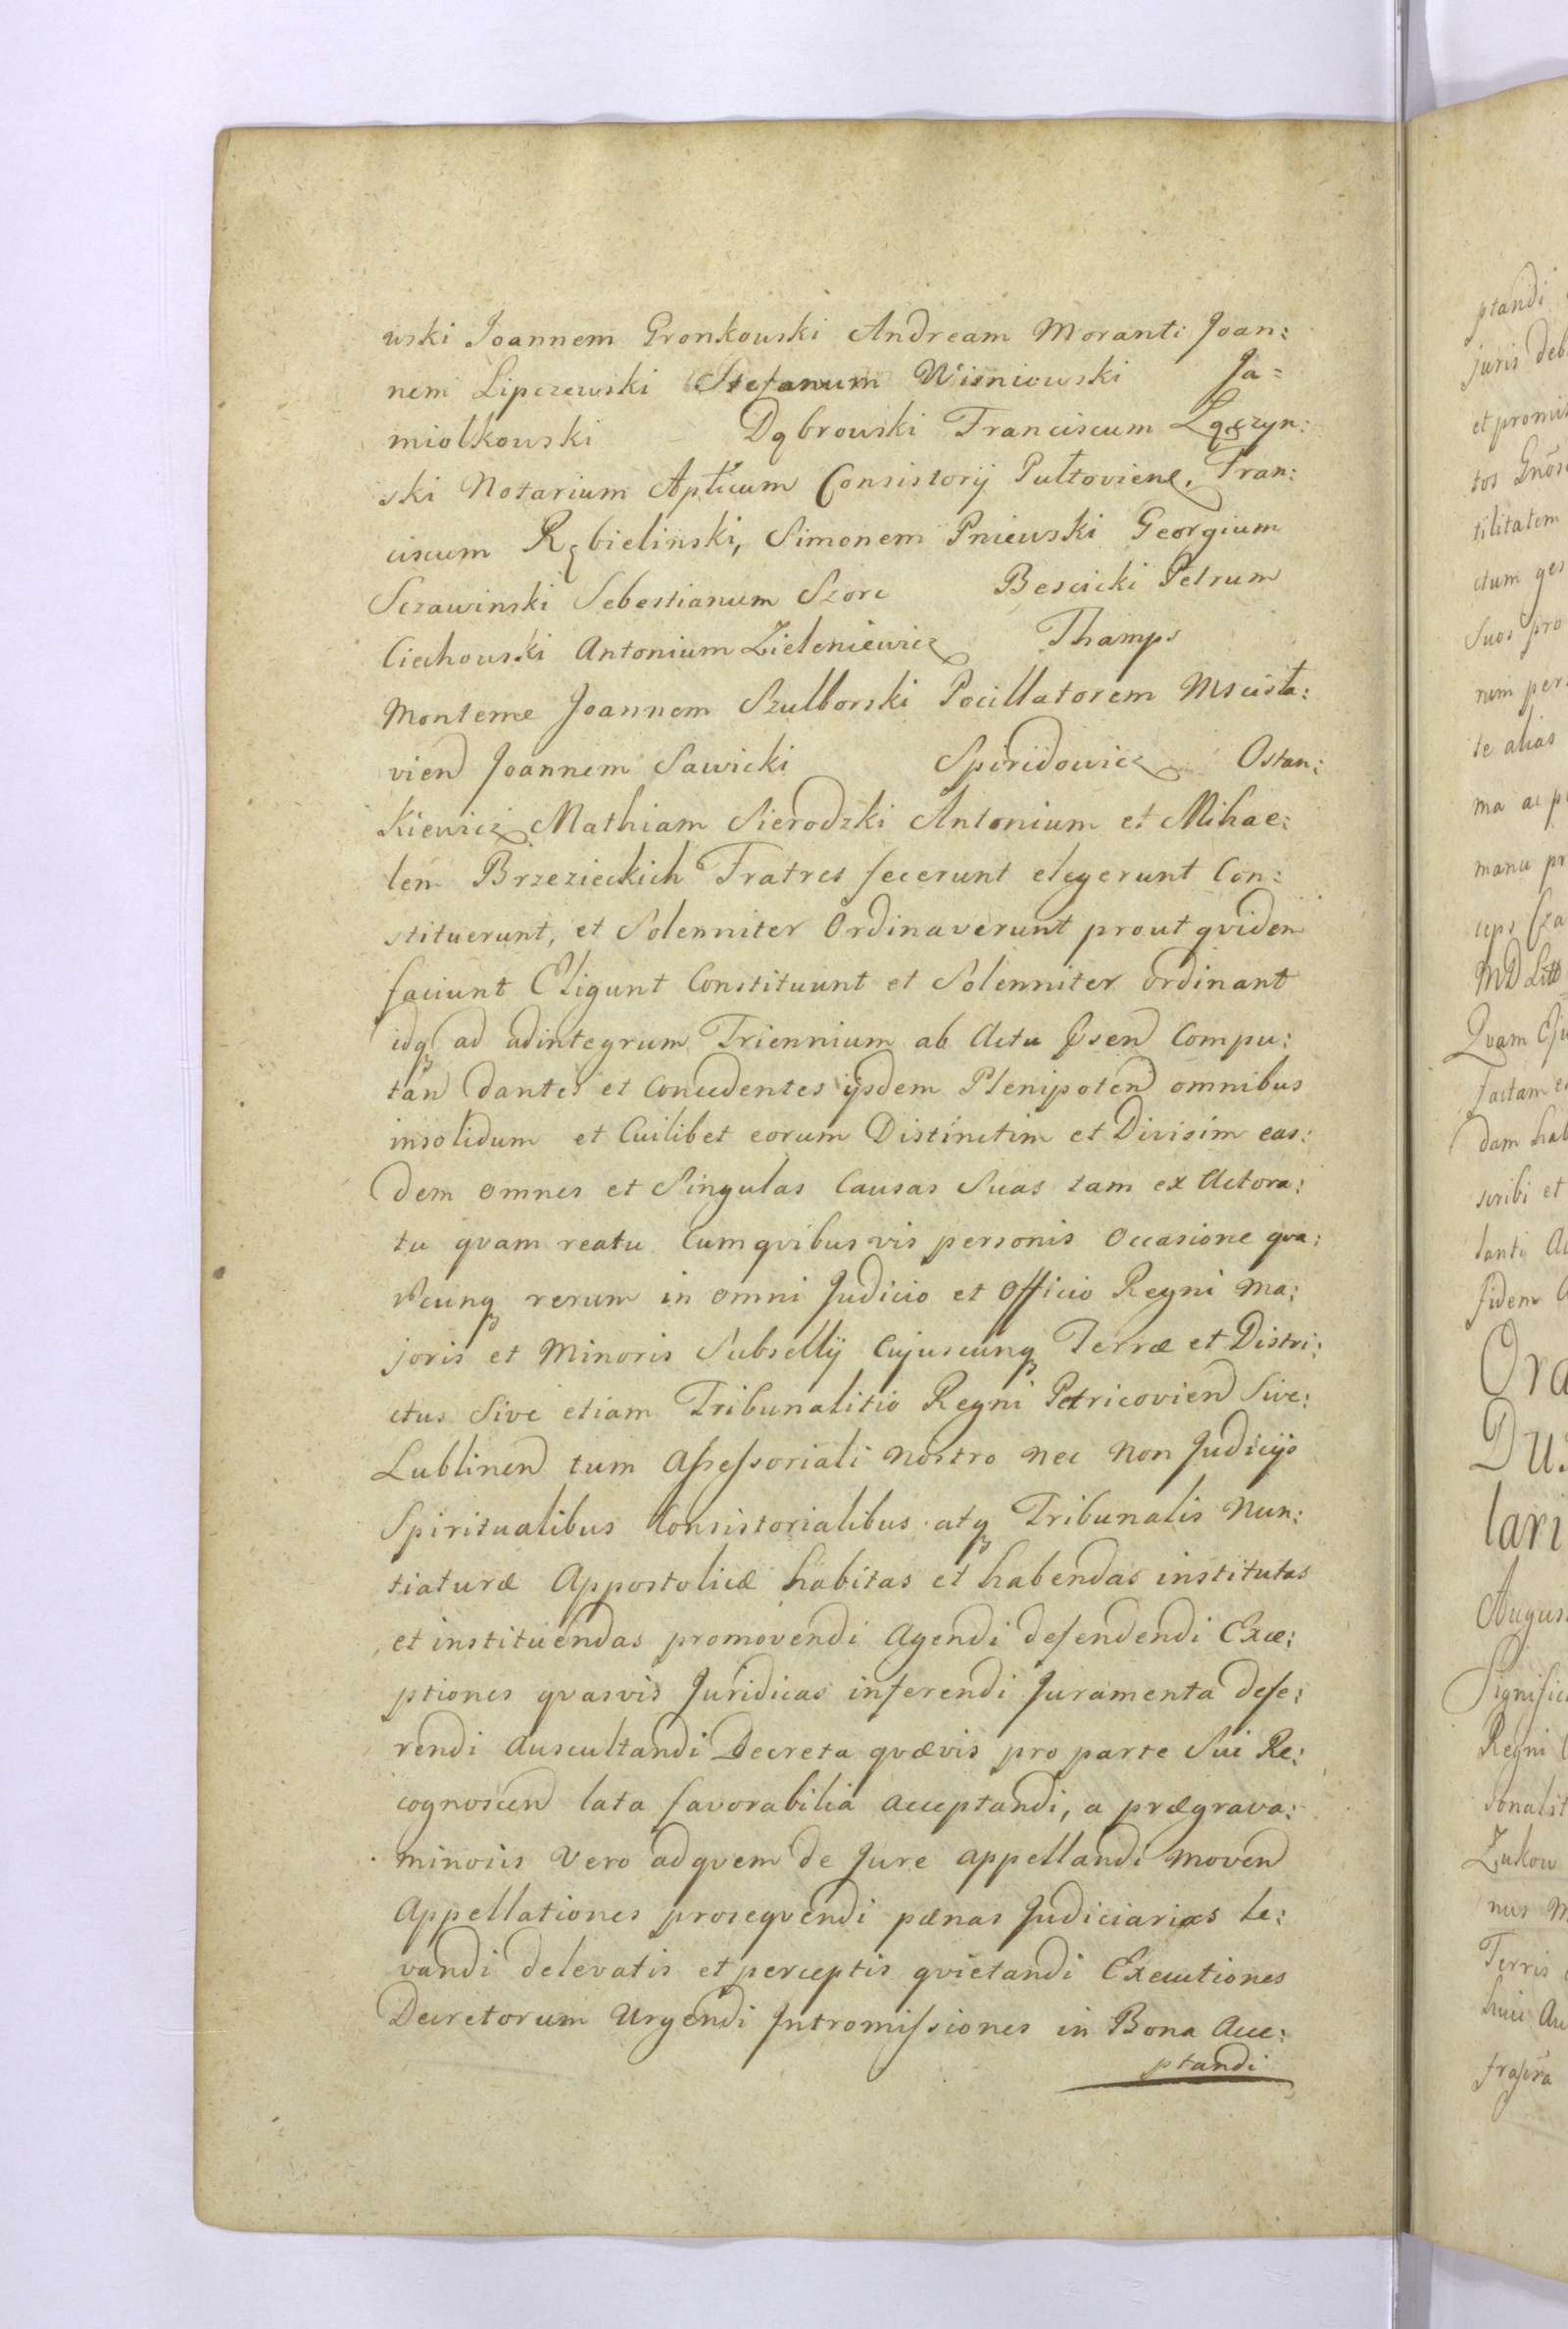 wski Joannem Gronkowski Andream Moranti Joan:
nem Lipczewski Stefanum Wisniowski Ja=
miolkowski Dąbrowski Franciscum Łączyn:
ski Notarium Aplicum Consistorij Pułtoviene. Fran:
ciscum Rębielinski, Simonem Pniewski Georgium
Sczawinski Sebestianum Szorc Bescicki Petrum
Ciechowski Antonium Zieleniewicz Thamps
Monteme Joannem Szulborski Pocillatorem Mscisła:
vien Joannem Sawicki Spiridowicz Ostan:
kiewicz Mathiam Sierodzki Antonium et Mihae:
lem Brzezieckich Fratres fecerunt elegerunt Con:
stituerunt, et Solenniter Ordinaverunt prout qvidem
faciunt Eligunt Constituunt et Solenniter ordinant
idq ad adintegrum Triennium ab Actu Psen Compu:
tan dantes et Concedentes ijsdem Plenipoten omnibus
insolidum et Cuilibet eorum Distinctim et Divisim eas:
dem omnes et Singulas Causas Suas tam ex Actora:
tu qvam reatu Cumqvibusvis personis Occasione qva:
rumcunq rerum in omni Judicio et Officio Regni Ma:
joris et Minoris Subsellij Cujuscunq Terræ et Distri:
ctus Sive etiam Tribunalitio Regni Petricovien Sive:
Lublinen tum Assessoriali nostro nec non Judicijs
Spiritualibus Consistorialibus atq Tribunalis Nun:
tiaturæ Appostolicæ habitas et habendas institutas
et instituendas promovendi Agendi defendendi Exce:
ptiones qvasvis Juridicas inferendi Juramenta defe:
rendi Auscultandi Decreta qvævis pro parte Sui Re:
cognoscen lata favorabilia acceptandi, a prægrava:
minosis Vero adqvem de Jure appellandi moven
Appellationes proseqvendi pænas Judiciarias le:
vandi delevatis et perceptis qvietandi Executiones
Decretorum Urgendi Intromissiones in Bona Acce:
ptandi